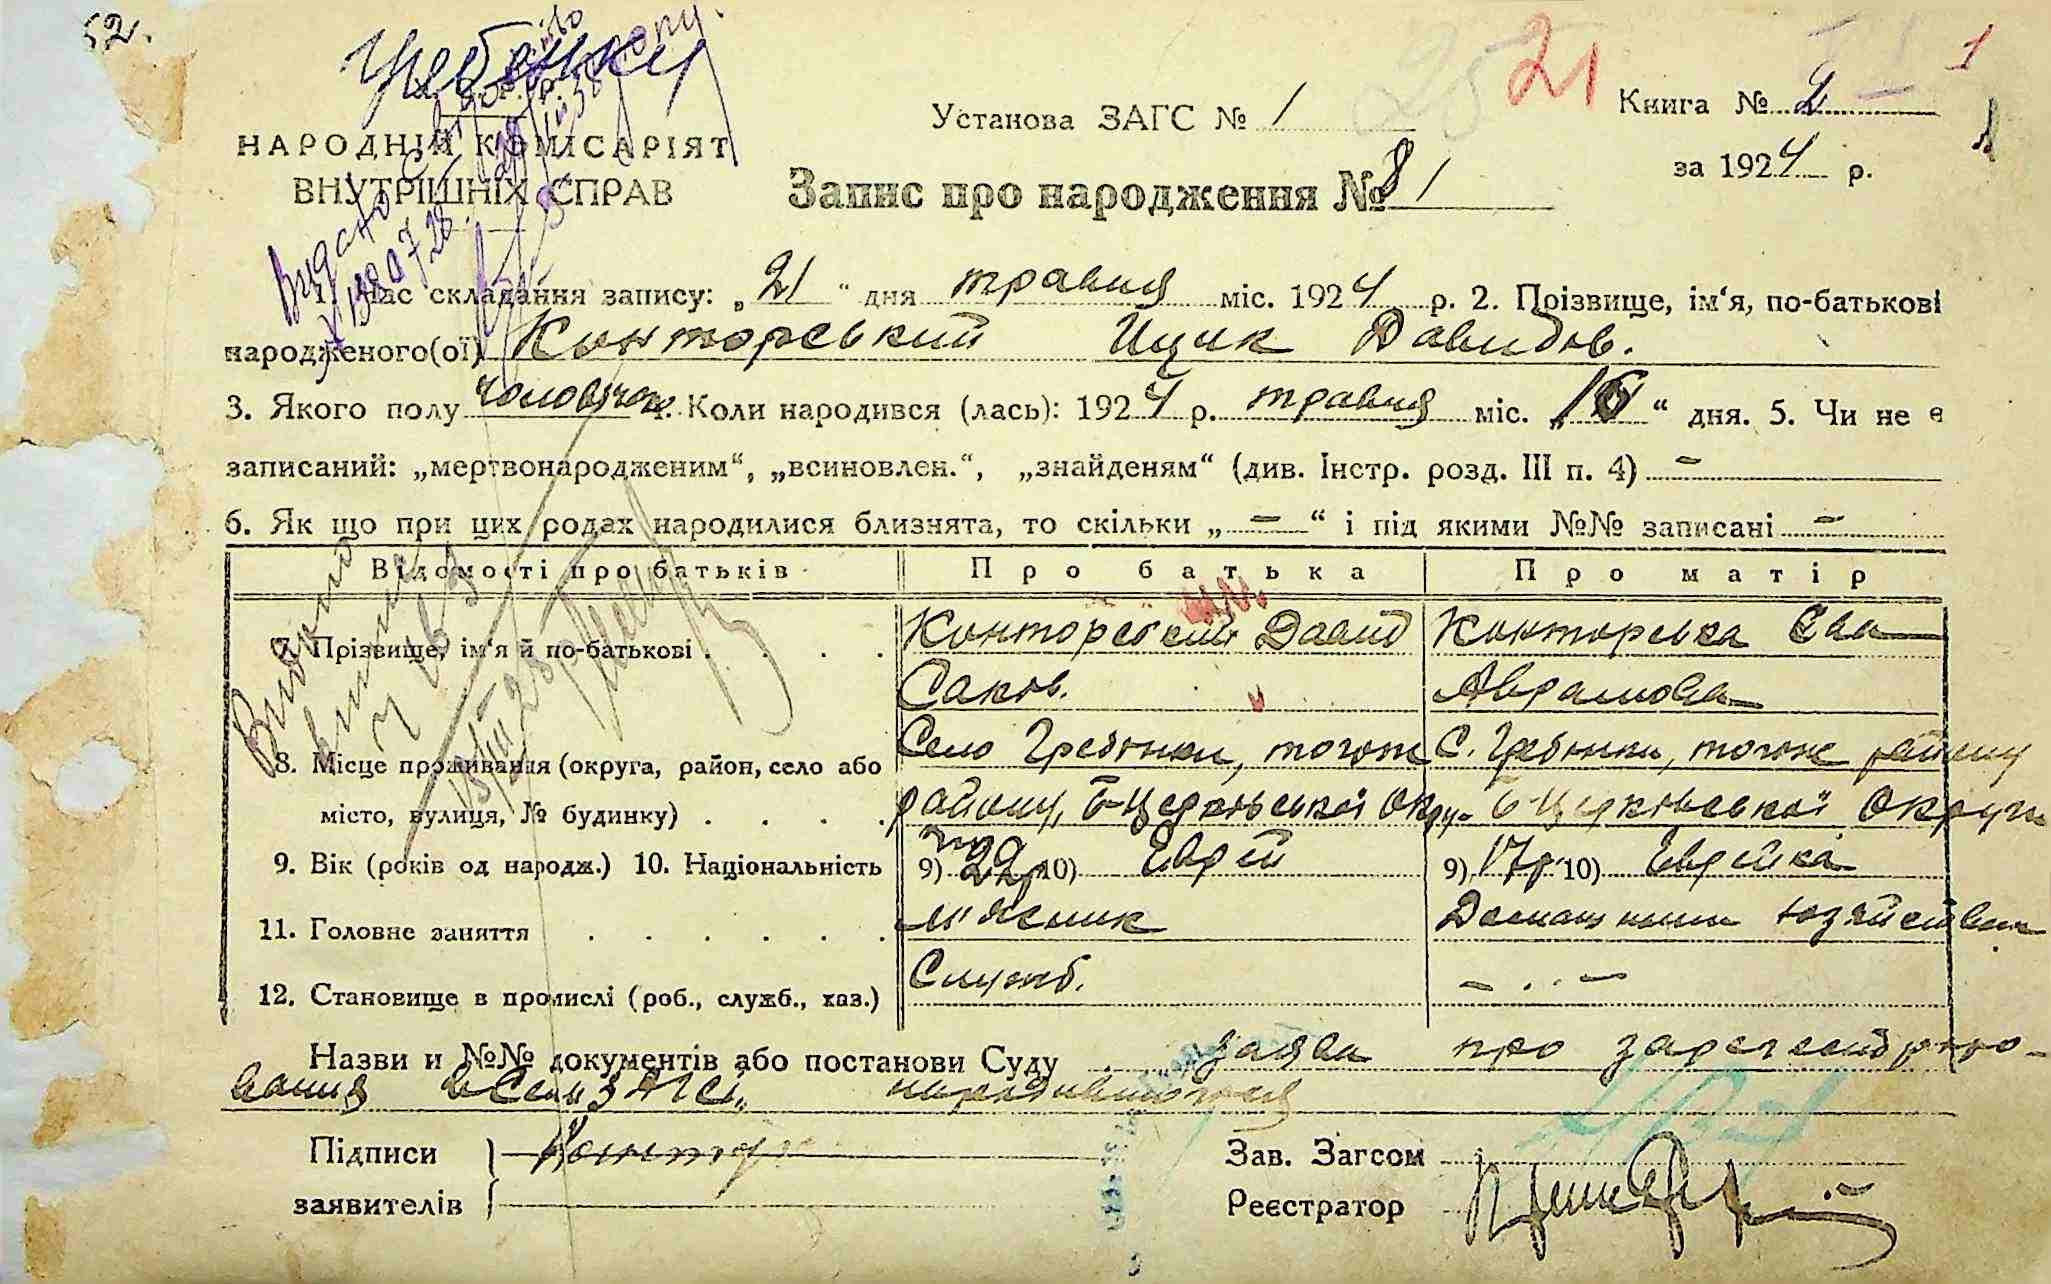 52.
Гребенки
21
1
Установа ЗАГС № 1
Книга № 2
за 1924 р.
НАРОДНІЙ КОМІСАРІЯТ
ВНУТРІШНІХ СПРАВ
Запис про народження № 81
1. Час складання запису: „21“ дня травня міс. 1924 р. 2. Прізвище, ім‘я, по-батькові
народженого(ої) Конторський Ицик Давидов.
3. Якого полу чоловічої 4. Коли народився (лась): 1924 р. травня міс. „16“ дня. 5. Чи не є
записаний: „мертвонародженим“, „всиновлен.“, „знайденям“ (див. Інстр. розд. III п. 4) —
6. Як що при цих родах народилися близнята, то скільки „—“ і під якими №№ записані —
Відомості про батьків Про батька Про матір
7. Прізвище, ім‘я й по-батькові . . . . Конторський Давид Конторська Ева
Саков. Аврамова
8. Місце проживання (округа, район, село або Село Гребінки, тогож С. Гребінки, тогож району
місто, вулиця, № будинку) . . . . району, Б-Церківської Окру. Б-Церківської Округи
9. Вік (років од народж.) 10. Національність 9) 22р 10) Еврей 9) 17р 10) Еврейка
11. Головне заняття . . . . . . м'ясник Домашним хозяйством
12. Становище в промислі (роб., служб., хаз.) Служб. — .. —
Назви и №№ документів або постанови Суду . заява про зарегестриро-
вания в Сель ЗАГСі народившогося
Підписи Контор
заявителів
Зав. Загсом
Реєстратор